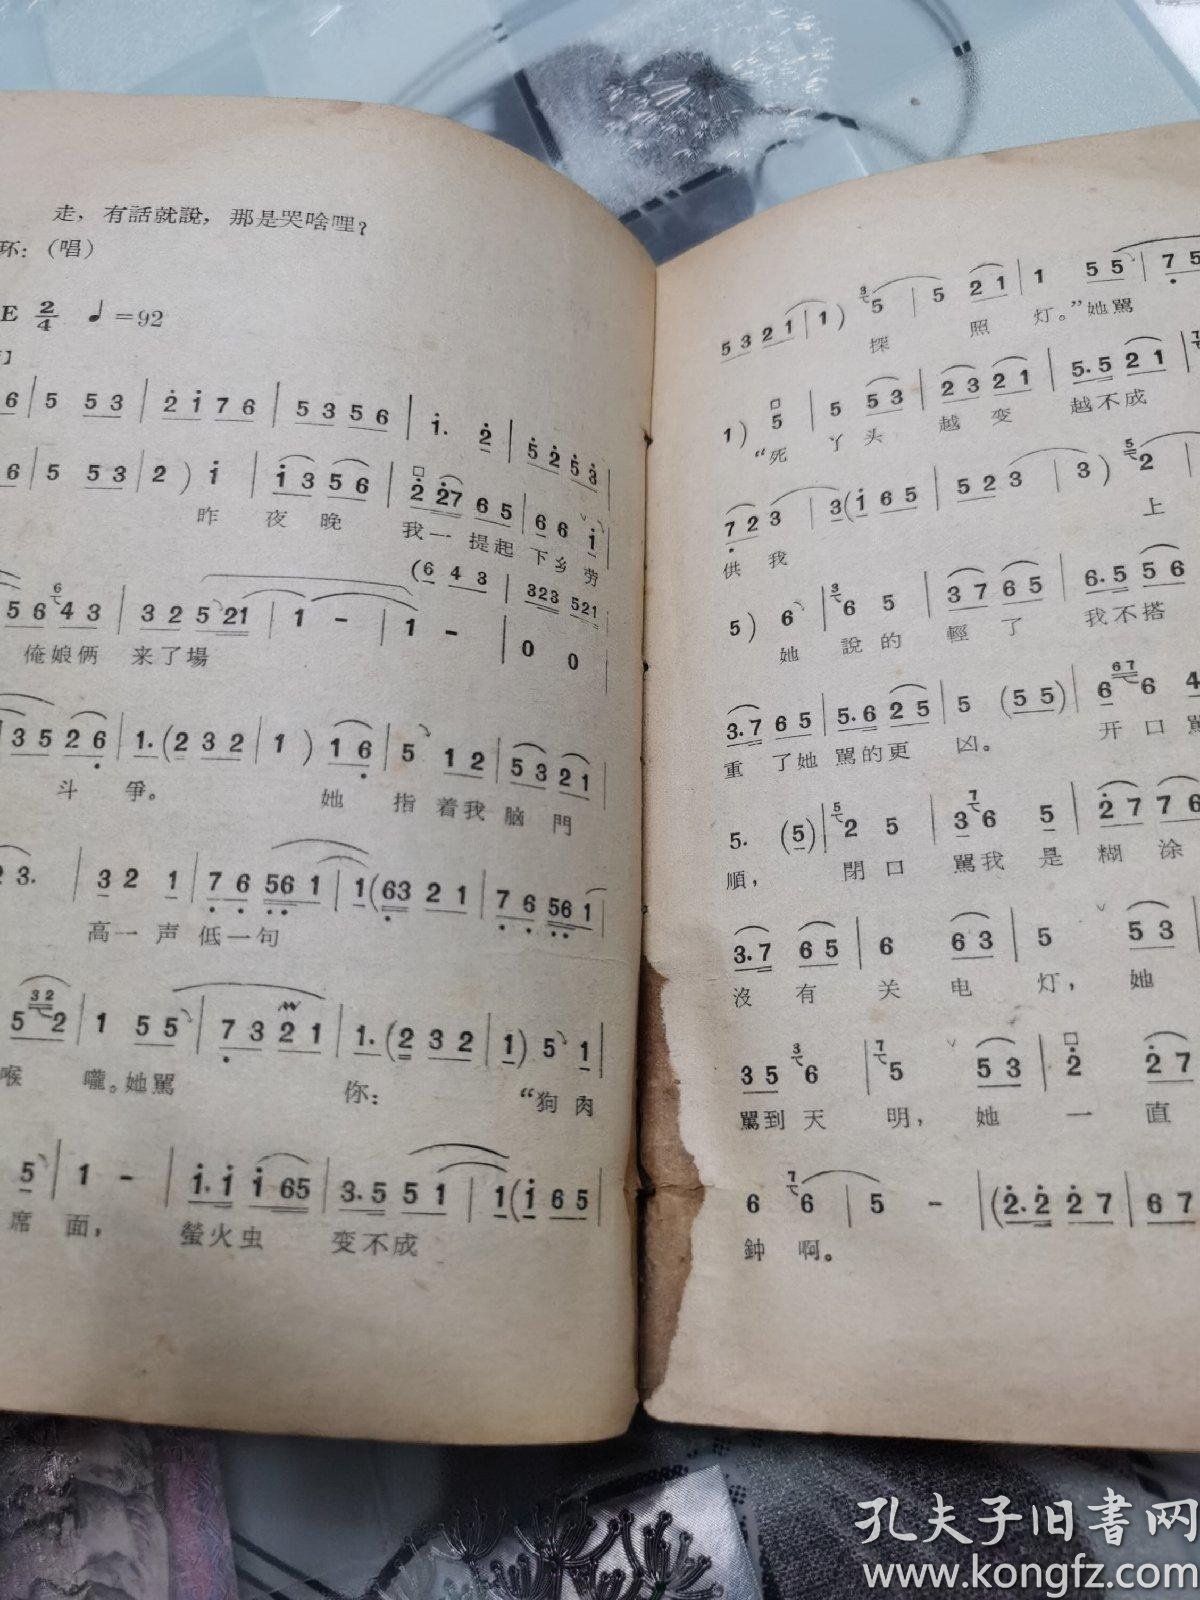 走，有話就說，那是哭啥哩？
环：（唱）
E 2/4 ♩=92
6 | 5 53 | 2176 | 5356 | 1. 2 | 5253 |
6 | 5 53 | 2 ) 1 | 1356 | 2 27 65 | 66 1 |
昨 夜 晚 我一 提起 下乡 劳
(6 4 3 | 323 521
56 6 43 | 32 521 | 1 - | 1 - | 0 0
俺娘俩 来了場
35 26 | 1.(232 | 1 ) 16 | 5 12 | 53 21
斗 爭。 她 指 着我 脑 門
3. | 32 1 | 76 561 | 1(63 21 | 76 561
高一 声 低一句
5 32 2 | 1 55 | 73 21 | 1.(232 | 1) 5 1
喉 嚨。她罵 你： “狗 肉
5 | 1 - | 1.1 165 | 3.5 51 | 1(165
席 面， 螢火虫 变不成
5321 | 1) 3 5 | 5 21 | 1 55 | 75
探 照 灯。”她罵
1) 5 | 5 53 | 23 21 | 5.5 21 |
“死 丫头 越 变 越不成
723 | 3(165 | 523 | 3) 5 2 |
供我 上
5) 6 | 3 6 5 | 37 65 | 6.5 56
她 說的 輕了 我不搭
3.7 65 | 5.6 25 | 5 (55) | 6 67 6 4
重 了她 罵的更 凶。 开口 罵
5. (5) | 5 2 5 | 3 7 6 5 | 27 76
順， 閉口 罵我 是 糊 涂
3.7 65 | 6 63 | 5 53
沒 有 关 电 灯， 她
35 3 6 | 7 5 53 | 2 27
罵到天 明， 她 一 直
6 7 6 | 5 - | (2.2 27 | 67
鈡 啊。
孔夫子旧書网
www.kongfz.com